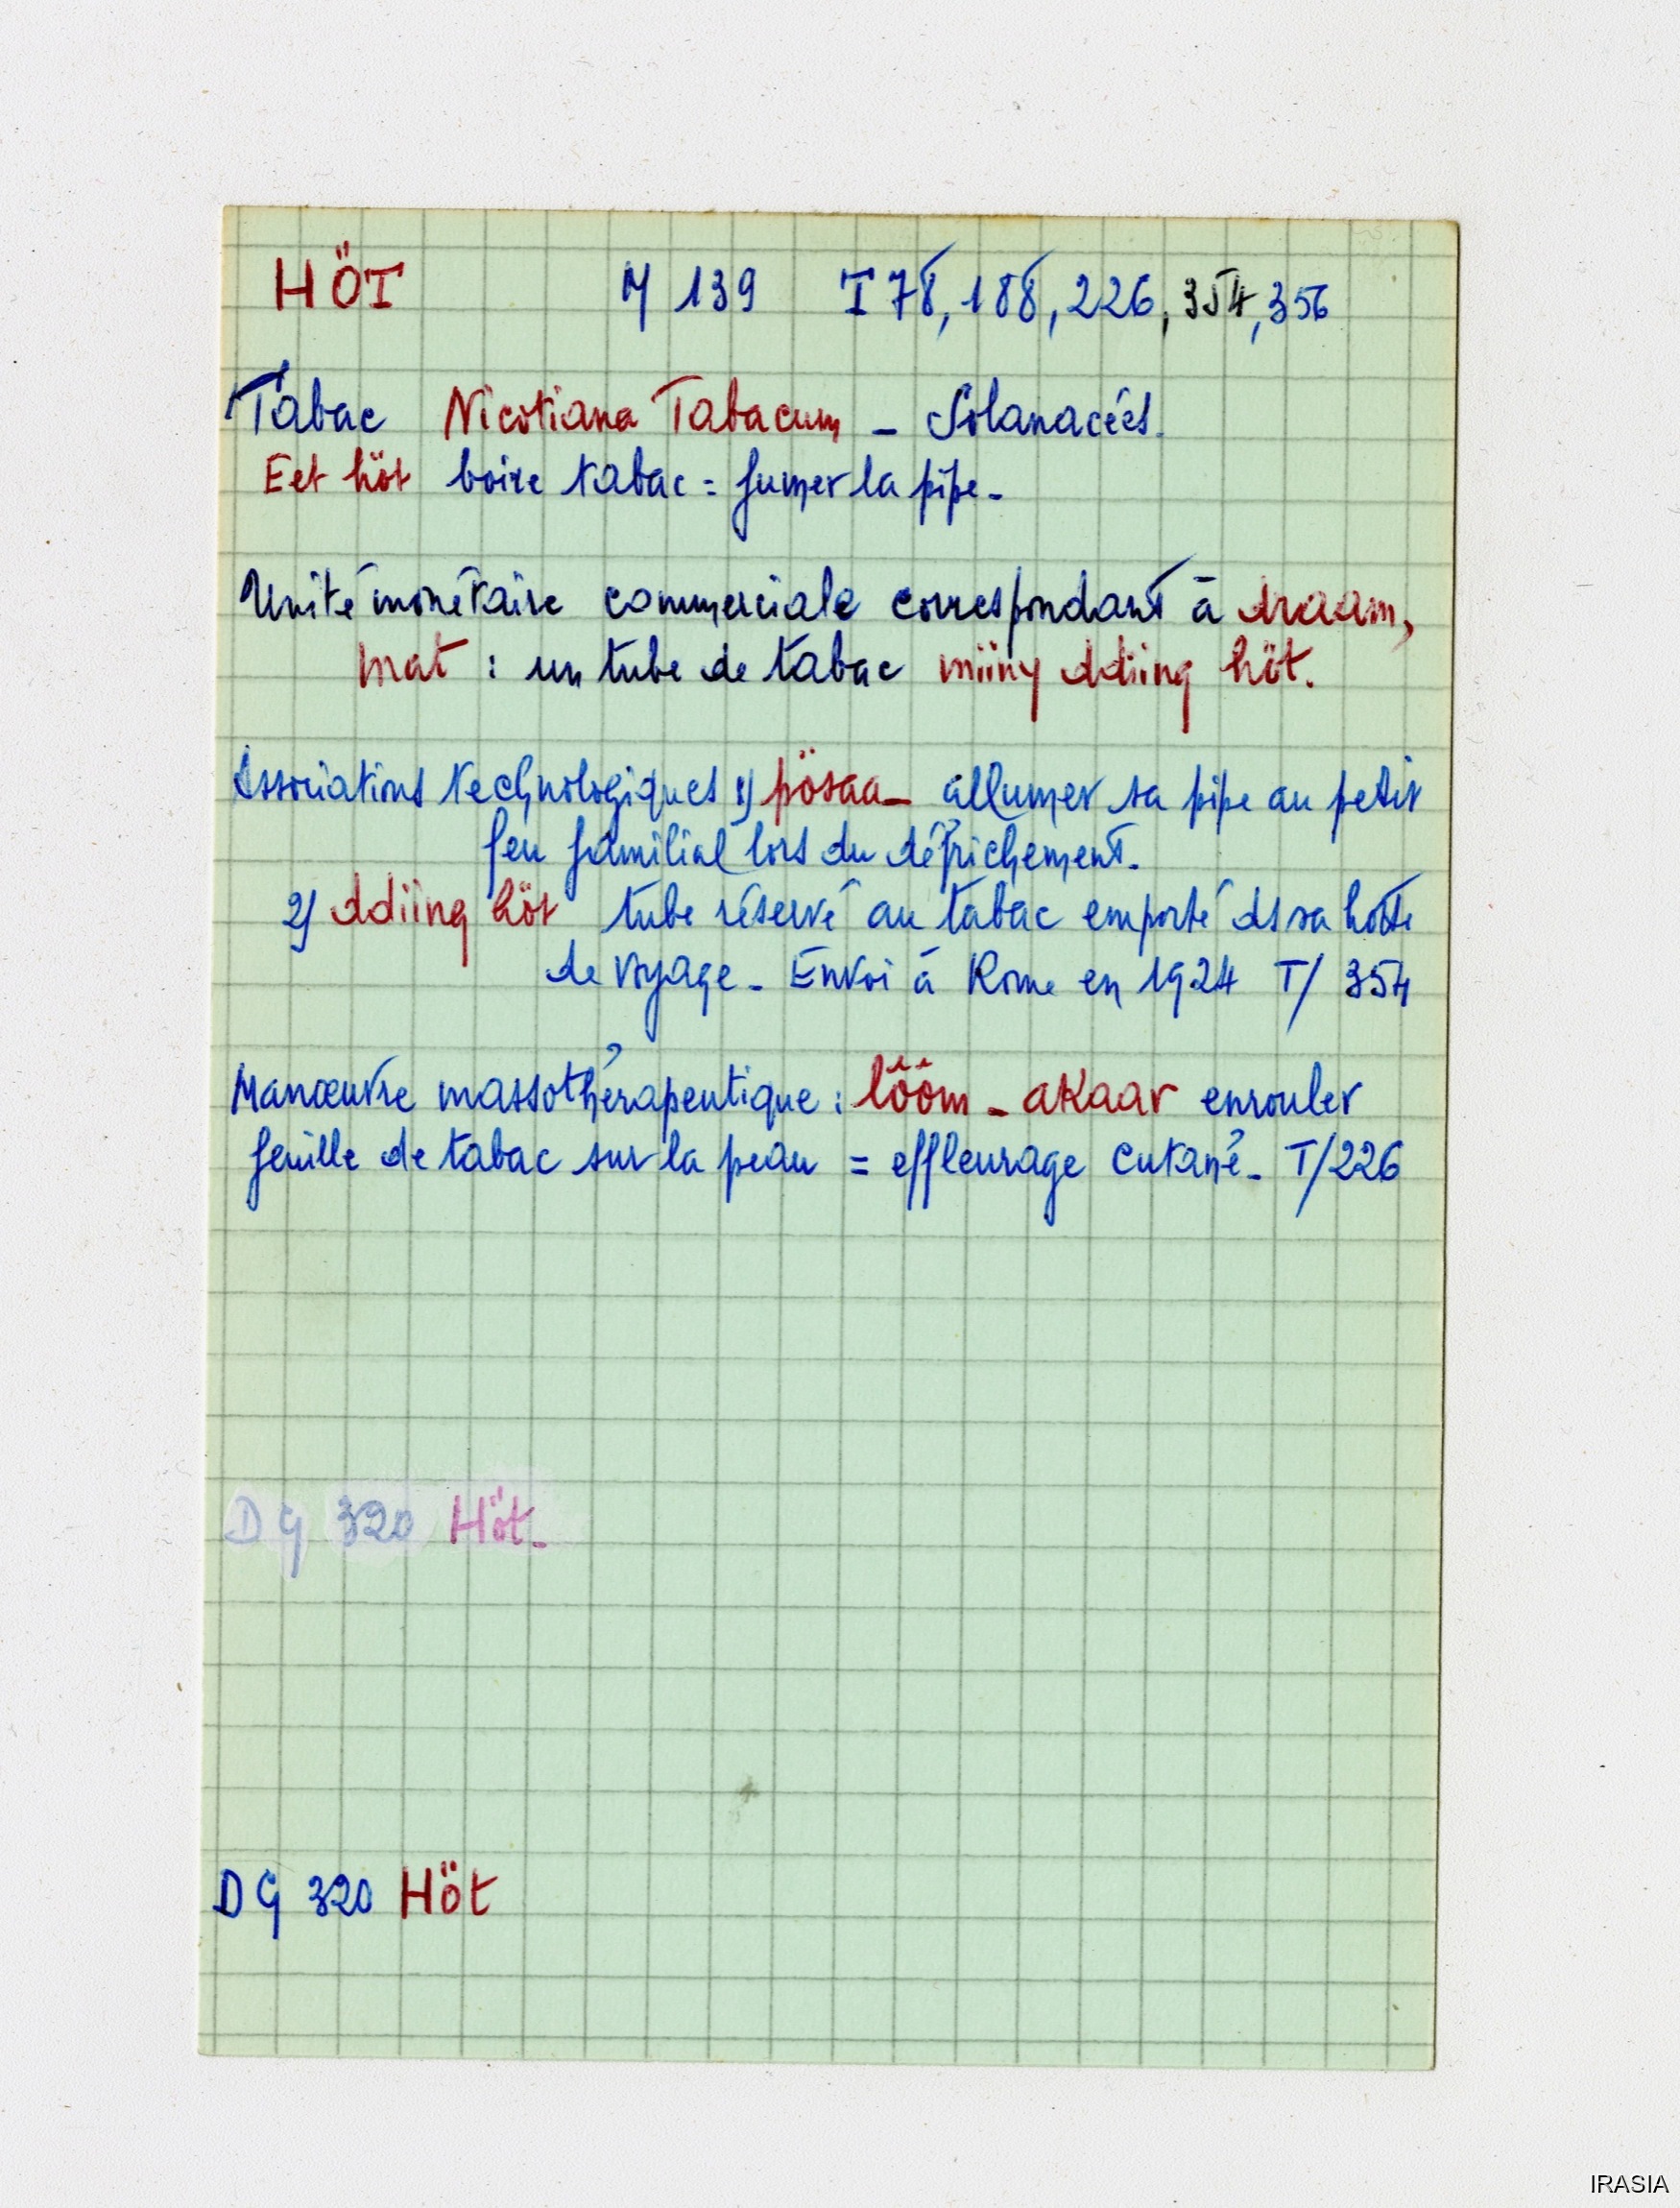 HÖT M 139 T 78, 188, 226, 354, 356
Tabac Nicotiana Tabacum – Solanacées.
Eet höt boire tabac = fumer la pipe –
Unité monétaire commerciale correspondant à draam,
mat : un tube de tabac miiny ddiing höt.
Associations technologiques 1) pösaa – allumer sa pipe au petit
feu familial lors du défrichement –
2) ddiing höt tube réservé au tabac emporté ds sa hotte
de voyage – Envoi à Rome en 1924 T/ 354
Manœuvre massothérapeutique : lôôm – akaar enrouler
feuille de tabac sur la peau = effleurage cutané – T/226
DG 320 Höt –
DG 320 Höt
IRASIA